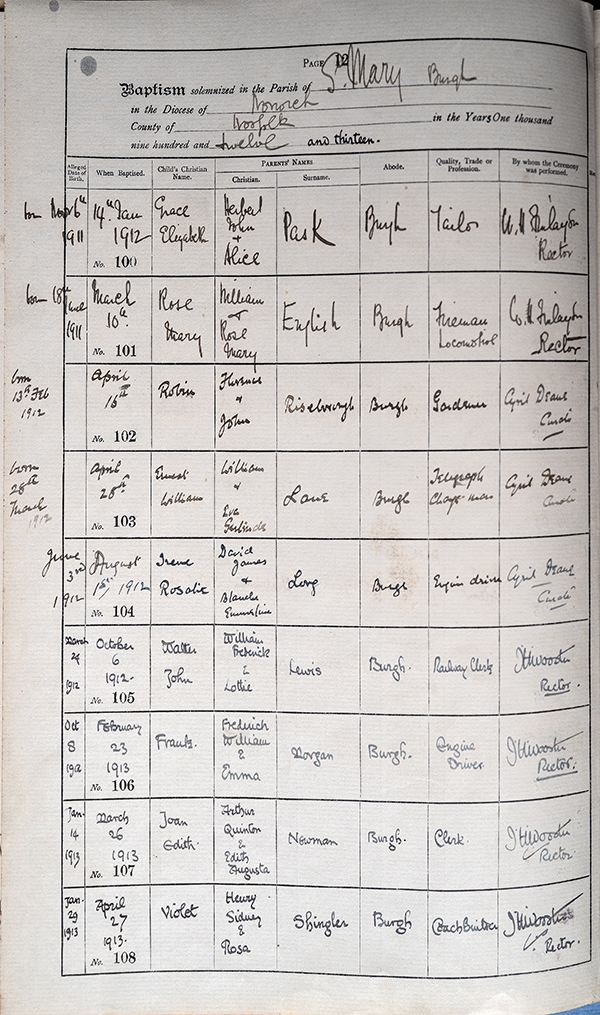 PAGE 12
Baptism solemnized in the Parish of St. Mary Burgh
in the Diocese of Norwich
County of Norfolk in the Years One thousand
nine hundred and twelve and thirteen.
Alleged Date of Birth. When Baptised. Child's Christian Name. PARENTS' NAMES Christian. Surname. Abode. Quality, Trade or Profession. By whom the Ceremony was performed.
born Novr 6th 1911 14th Jan 1912 No. 100 Grace Elizabeth Herbert John + Alice Pask Burgh Tailor W. H Finlayson Rector
born 18th June 1911 March 10th No. 101 Rose Mary William + Rose Mary English Burgh Fireman Locomotive W. H Finlayson Rector
born 13th Feb 1912 April 15th No. 102 Robin Florence & John Riseborough Burgh Gardener Cyril Deane Curate
born 28th March 1912 April 28th No. 103 Ernest William William & Eva Gertrude Lane Burgh Telegraph Cyril Deane Curate
June 3rd 1912 August 1st, 1912 No. 104 Irene Rosalie David James & Blanche Emmeline Long Burgh Engine driver Cyril Deane Curate
March 29 1912 October 6 1912. No. 105 Walter John William Frederick & Lottie Lewis Burgh. Railway Clerk JHWooster Rector.
Oct 8 1912 February 23 1913 No. 106 Frank. Fredrich William & Emma Morgan Burgh. Engine Driver. JHWooster Rector.
Jan. 14 1913 March 26 1913 No. 107 Joan Edith. Arthur Quinton & Edith Augusta Newman Burgh. Clerk. JHWooster Rector.
Jan. 29 1913 April 27 1913. No. 108 Violet Henry Sidney & Rosa Shingler Burgh Coach Builder JHWooster Rector.